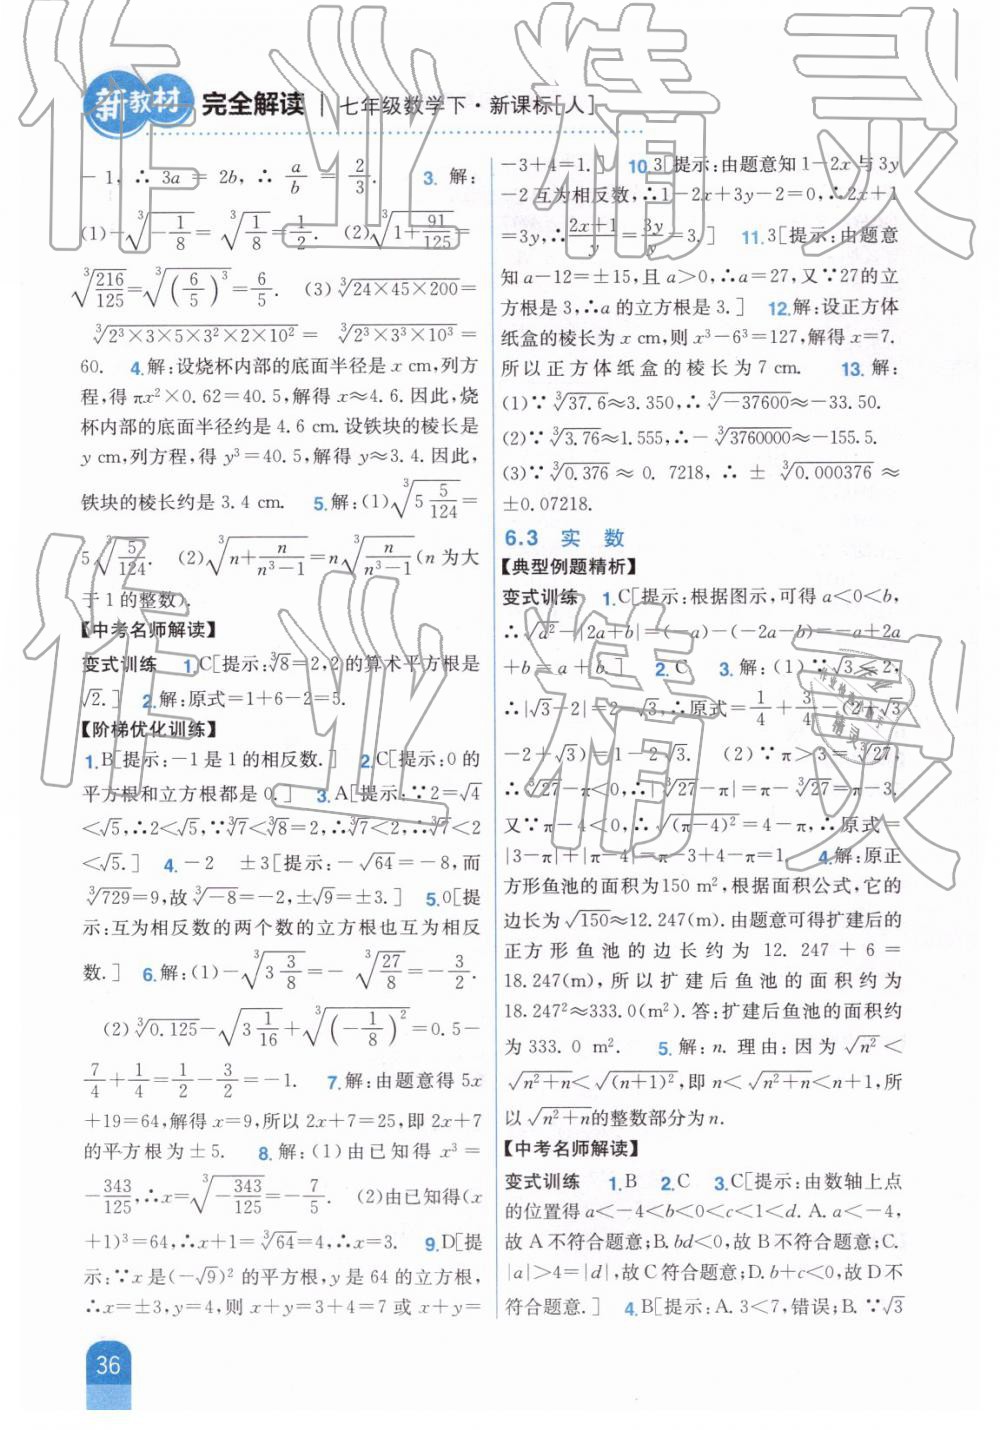 新教材 完全解读 | 七年级数学下·新课标[人]
-1, ∴ 3a = 2b, ∴ a/b = 2/3. 3. 解:
(1)-∛(-1/8)=∛(1/8)=1/2. (2)∛(1+91/125)=
∛(216/125)=∛((6/5)³)=6/5. (3)∛(24×45×200)=
∛(2³×3×5×3²×2×10²)= ∛(2³×3³×10³)=
60. 4.解:设烧杯内部的底面半径是 x cm,列方
程,得 πx²×0.62=40.5,解得 x≈4.6.因此,烧
杯内部的底面半径约是 4.6 cm.设铁块的棱长是
y cm,列方程,得 y³=40.5,解得 y≈3.4.因此,
铁块的棱长约是 3.4 cm. 5.解:(1)∛(5 5/124)=
5∛(5/124). (2)∛(n+n/(n³-1))=n∛(n/(n³-1))(n 为大
于 1 的整数).
【中考名师解读】
变式训练 1.C[提示:∛8=2,2的算术平方根是
√2.] 2.解:原式=1+6-2=5.
【阶梯优化训练】
1.B[提示:-1是1的相反数.] 2.C[提示:0的
平方根和立方根都是 0.] 3.A[提示:∵2=√4
<√5,∴2<√5,∵∛7<∛8=2,∴∛7<2,∴∛7<2
<√5.] 4.-2 ±3[提示:-√64=-8,而
∛729=9,故∛-8=-2,±√9=±3.] 5.0[提
示:互为相反数的两个数的立方根也互为相反
数.] 6.解:(1)-∛(3 3/8)=-∛(27/8)=-3/2.
(2)∛0.125-√(3 1/16)+∛((-1/8)²)=0.5-
7/4+1/4=1/2-3/2=-1. 7.解:由题意得 5x
+19=64,解得 x=9,所以 2x+7=25,即 2x+7
的平方根为±5. 8.解:(1)由已知得 x³=
-343/125,∴x=∛(-343/125)=-7/5. (2)由已知得(x
+1)³=64,∴x+1=∛64=4,∴x=3. 9.D[提
示:∵x是(-√9)²的平方根,y是64的立方根,
∴x=±3,y=4,则 x+y=3+4=7 或 x+y=
-3+4=1.] 10.3[提示:由题意知1-2x与3y
-2互为相反数,∴1-2x+3y-2=0,∴2x+1
=3y,∴(2x+1)/y=3y/y=3.] 11.3[提示:由题意
知 a-12=±15,且 a>0,∴a=27,又∵27的立
方根是3,∴a的立方根是3.] 12.解:设正方体
纸盒的棱长为 x cm,则 x³-6³=127,解得 x=7.
所以正方体纸盒的棱长为 7 cm. 13.解:
(1)∵∛37.6≈3.350,∴∛-37600≈-33.50.
(2)∵∛3.76≈1.555,∴-∛3760000≈-155.5.
(3)∵∛0.376≈0.7218,∴±∛0.000376≈
±0.07218.
6.3 实 数
【典型例题精析】
变式训练 1.C[提示:根据图示,可得 a<0<b,
∴√a²-|2a+b|=(-a)-(-2a-b)=-a+2a
+b=a+b.] 2.C 3.解:(1)∵√3<2,
∴|√3-2|=2-√3,∴原式=1/4+3/4-(2+√3
-2+√3)=1-2√3. (2)∵π>3=∛27,
∴∛27-π<0,∴|∛27-π|=π-∛27=π-3.
又∵π-4<0,∴√(π-4)²=4-π,∴原式=
|3-π|+|π-4|=π-3+4-π=1. 4.解:原正
方形鱼池的面积为150 m²,根据面积公式,它的
边长为√150≈12.247(m).由题意可得扩建后的
正方形鱼池的边长约为 12.247+6=
18.247(m),所以扩建后鱼池的面积约为
18.247²≈333.0(m²).答:扩建后鱼池的面积约
为 333.0 m². 5.解:n.理由:因为√n²<
√(n²+n)<√(n+1)²,即 n<√(n²+n)<n+1,所
以√(n²+n)的整数部分为n.
【中考名师解读】
变式训练 1.B 2.C 3.C[提示:由数轴上点
的位置得 a<-4<b<0<c<1<d.A.a<-4,
故A不符合题意;B.bd<0,故B不符合题意;C.
|a|>4=|d|,故C符合题意;D.b+c<0,故D不
符合题意.] 4.B[提示:A.3<7,错误;B.∵√3
36
作业精灵
作业精灵